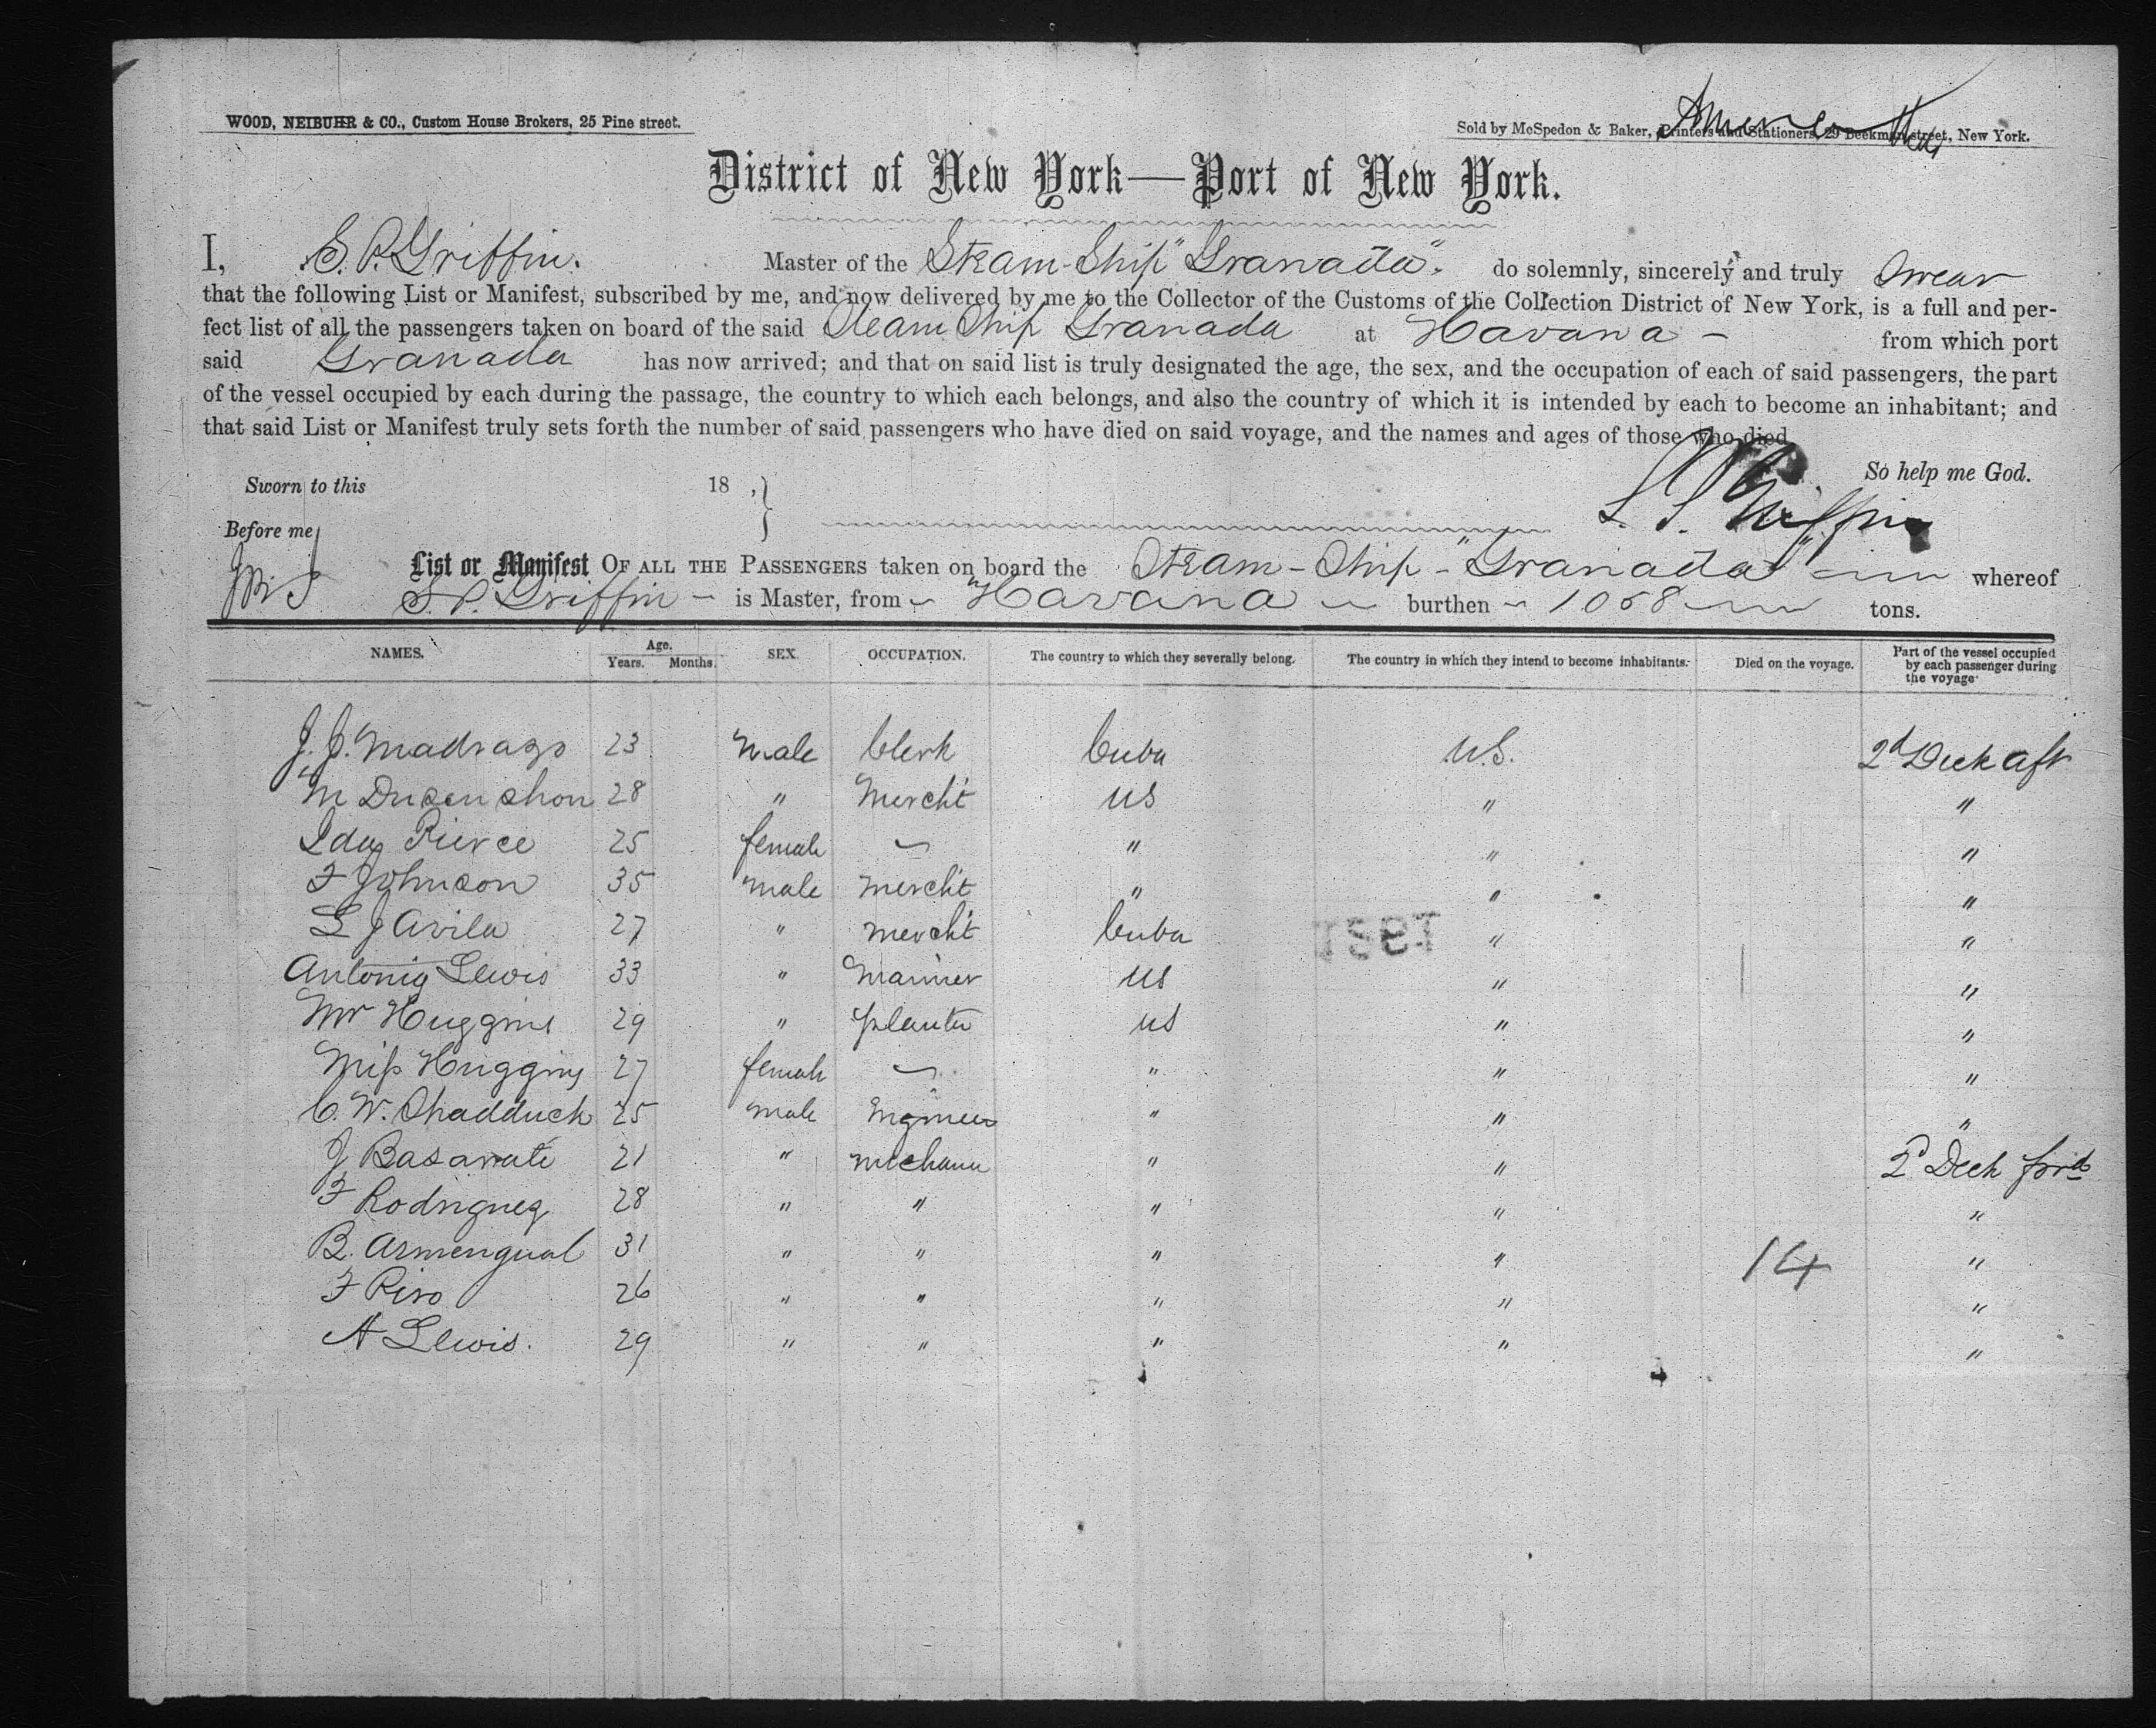 WOOD, NEIBUHR & CO., Custom House Brokers, 25 Pine street.
Sold by McSpedon & Baker, Printers and Stationers, 29 Beekman street, New York.
District of New York—Port of New York.
I, S. P. Griffin. Master of the Steam-Ship "Granada". do solemnly, sincerely and truly Swear
that the following List or Manifest, subscribed by me, and now delivered by me to the Collector of the Customs of the Collection District of New York, is a full and per-
fect list of all the passengers taken on board of the said Steam Ship Granada at Havana - from which port
said Granada has now arrived; and that on said list is truly designated the age, the sex, and the occupation of each of said passengers, the part
of the vessel occupied by each during the passage, the country to which each belongs, and also the country of which it is intended by each to become an inhabitant; and
that said List or Manifest truly sets forth the number of said passengers who have died on said voyage, and the names and ages of those who died.
So help me God.
Sworn to this 18 ,}
S. P. Griffin
Before me
List or Manifest OF ALL THE PASSENGERS taken on board the Steam-Ship-"Granada" whereof
S. P. Griffin - is Master, from Havana burthen 1058 tons.
NAMES. Age. Years. Months. SEX. OCCUPATION. The country to which they severally belong. The country in which they intend to become inhabitants. Died on the voyage. Part of the vessel occupied by each passenger during the voyage
J. J. Madrazo 23 Male Clerk Cuba U.S. 2d Deck aft
M Dusenshon 28 " Mercht US " "
Ida Pierce 25 female ~ " " "
F Johnson 35 male mercht " " "
S J Avila 27 " mercht Cuba " "
Antonio Lewis 33 " Mariner US " "
Mr Huggins 29 " planter US " "
Miss Huggins 27 female ~ " " "
C. W. Shadduck 25 male Engineer " " "
J Basarate 21 " mechanic " " 2d Deck forwd
F Rodriguez 28 " " " " "
B. Armengual 31 " " " " 14 "
F Riso 26 " " " " "
A Lewis. 29 " " " " "